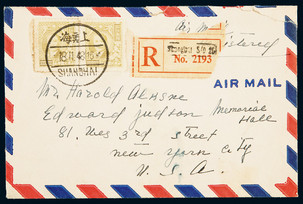 Air Mail
Registered
上海
SHANGHAI
R
Shanghai
No. 2193
AIR MAIL
Mr. Harold
Edward Judson Memorial
Hall
81. Wes 3rd street
new york city
U. S. A.